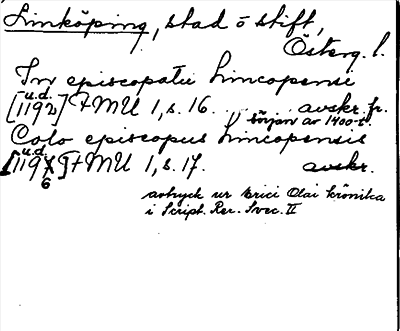 Linköping, stad o stift,
Österg. l.
In episcopatu Lincopensi
u.d.
[1192] FMU 1, s. 16. avskr. fr.
början av 1400-t.
Colo episcopus Lincopensis
u.d.
[1196] FMU 1, s. 17. avskr.
avtryck ur Erici Olai krönika
i Script. Rer. Svec. II